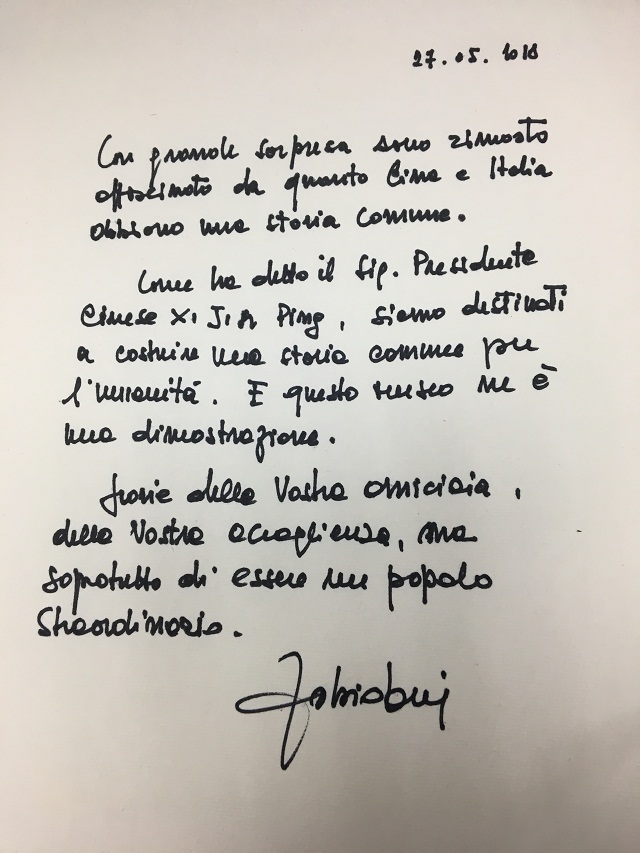 27.05.2018
Con grande sorpresa sono rimasto
affascinato da quanto Cina e Italia
abbiano una storia comune.
Come ha detto il Sig. Presidente
Cinese Xi Jin Ping, siamo destinati
a costruire una storia comune per
l'umanità. E questo museo ne è
una dimostrazione.
Grazie della Vostra amicizia,
della Vostra accoglienza, ma
sopratutto di essere un popolo
straordinario.